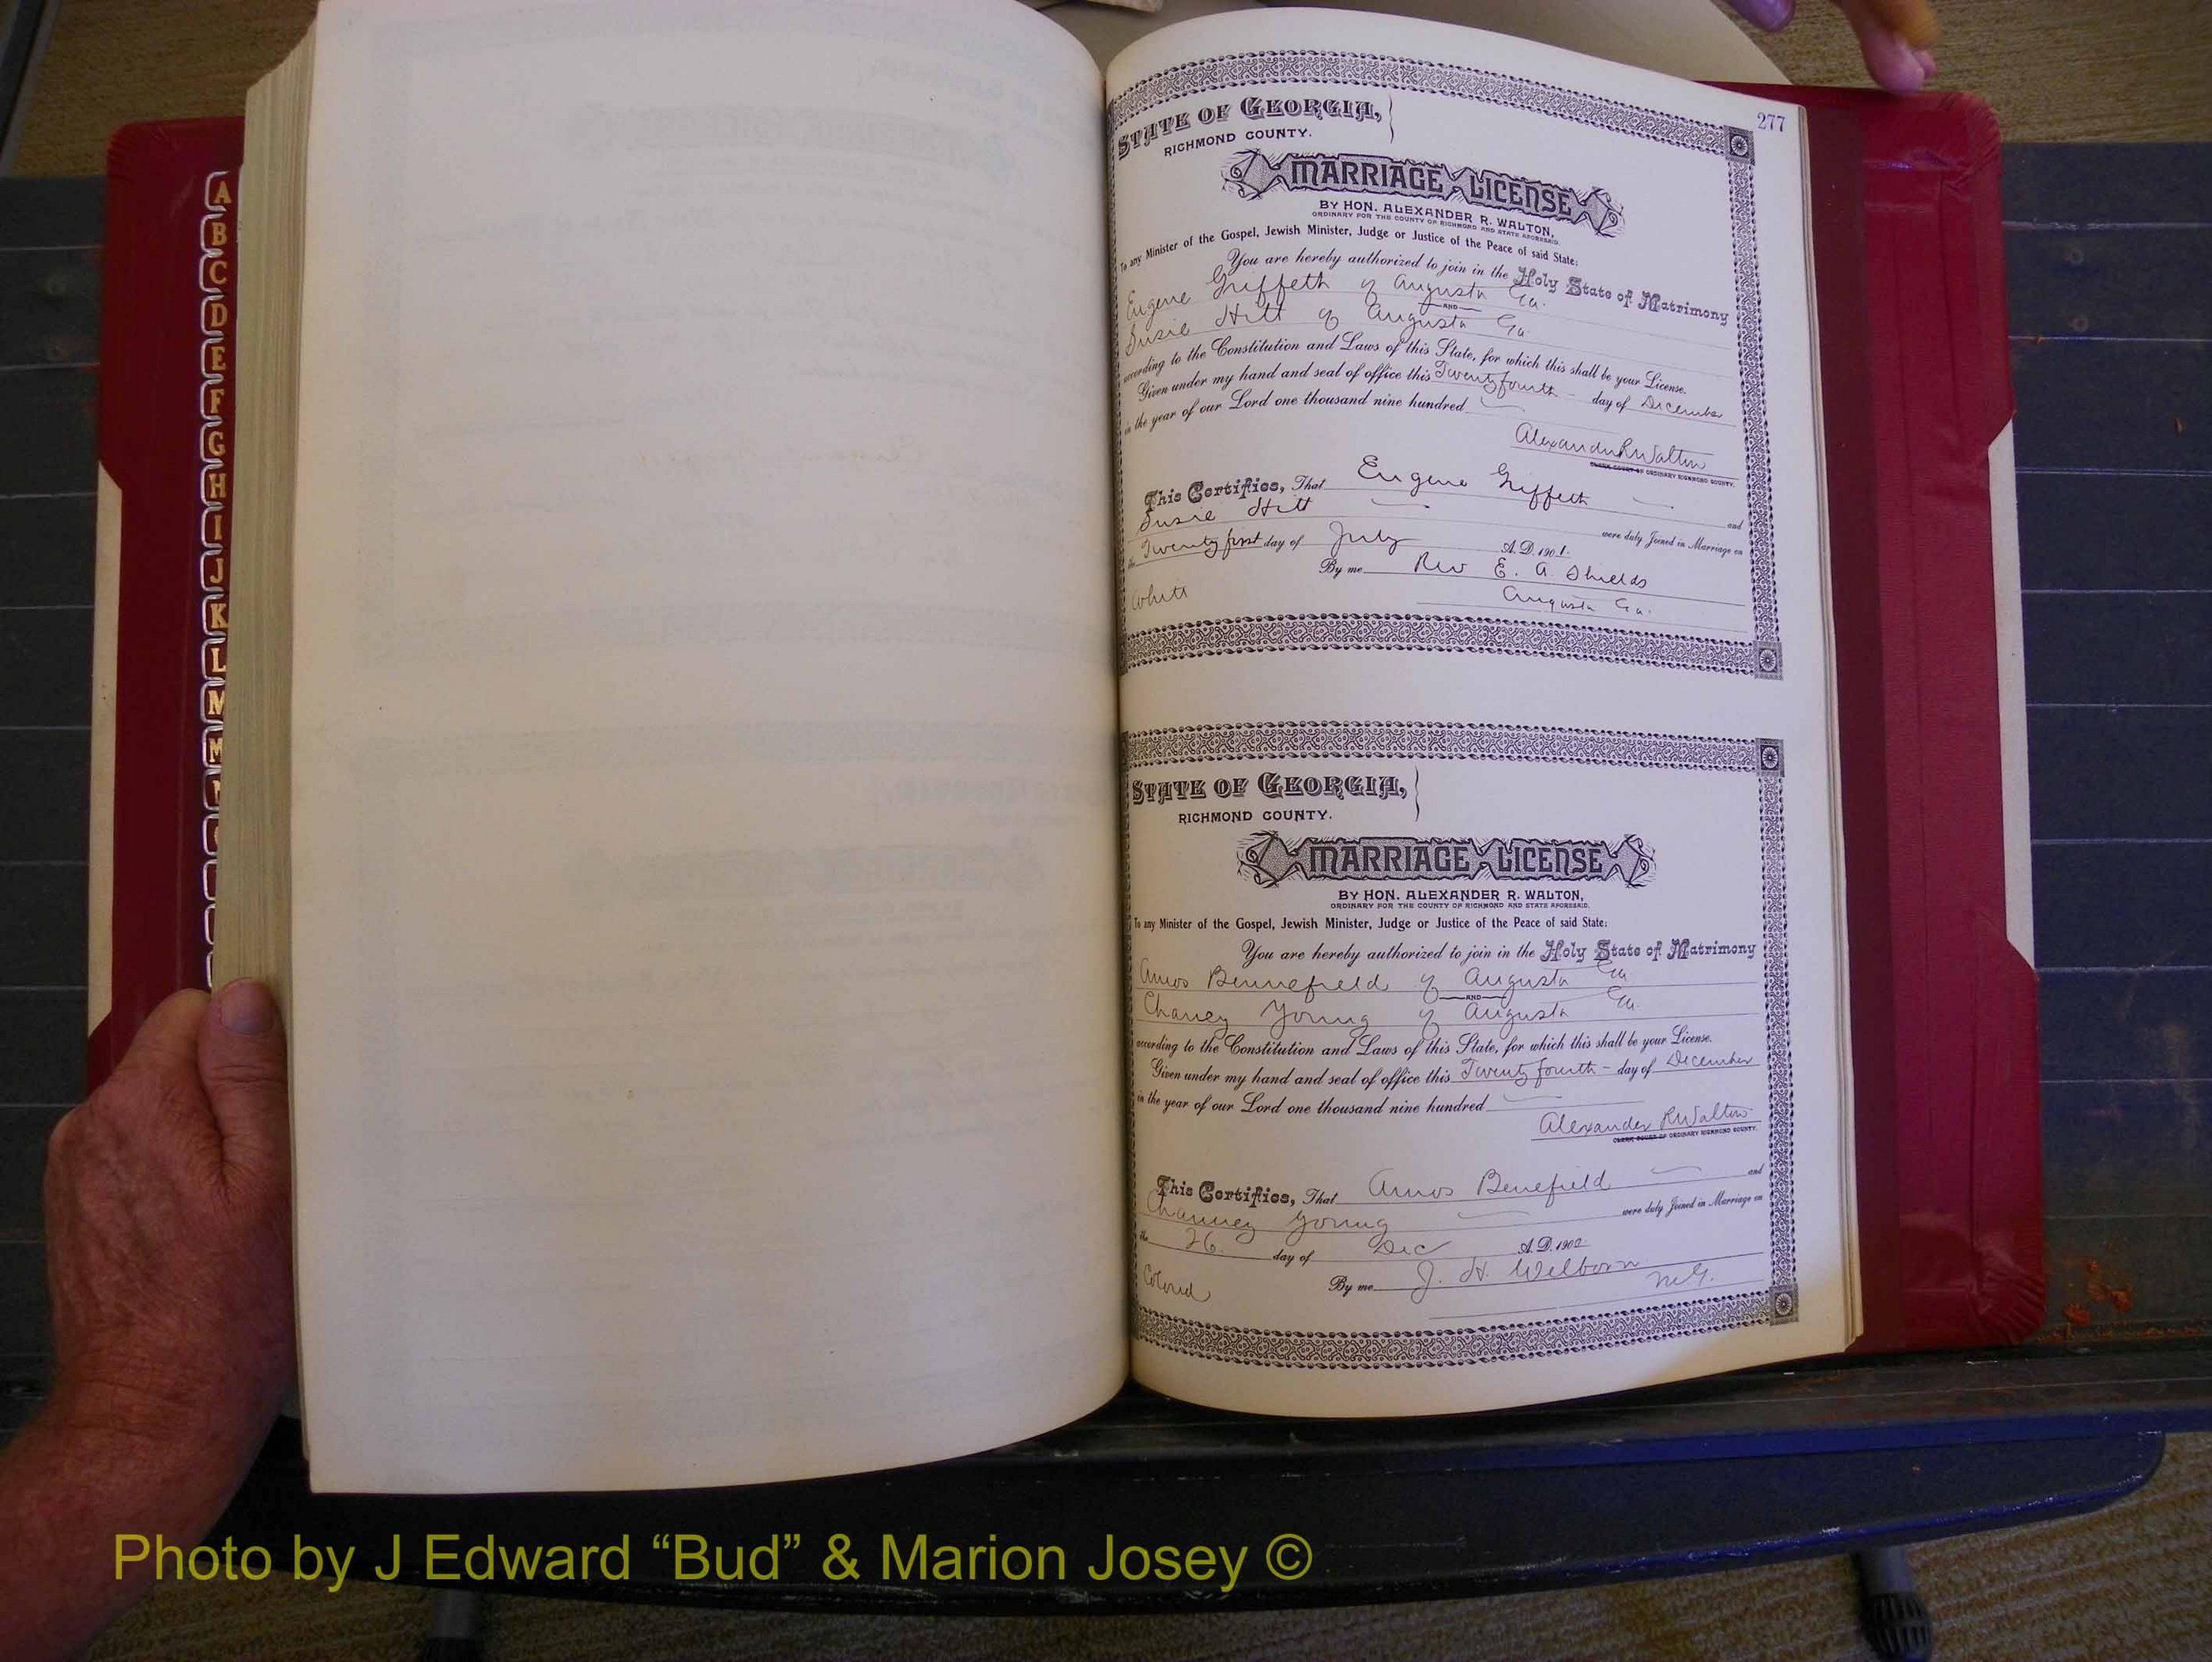 A
B
C
D
E
F
G
H
I
J
K
L
M
M
277
STATE OF GEORGIA,
RICHMOND COUNTY.
MARRIAGE LICENSE
BY HON. ALEXANDER R. WALTON,
ORDINARY FOR THE COUNTY OF RICHMOND AND STATE AFORESAID.
To any Minister of the Gospel, Jewish Minister, Judge or Justice of the Peace of said State:
You are hereby authorized to join in the Holy State of Matrimony
Eugene Griffeth of Augusta Ga.
AND
Susie Hitt of Augusta Ga.
according to the Constitution and Laws of this State, for which this shall be your License.
Given under my hand and seal of office this Twenty fourth day of December
in the year of our Lord one thousand nine hundred
Alexander R Walton
CLERK COURT OF ORDINARY RICHMOND COUNTY.
This Certifies, That Eugene Griffeth and
Susie Hitt were duly Joined in Marriage on
the Twenty first day of July A. D. 1901.
By me Rev E. A. Shields
White Augusta Ga.
STATE OF GEORGIA,
RICHMOND COUNTY.
MARRIAGE LICENSE
BY HON. ALEXANDER R. WALTON,
ORDINARY FOR THE COUNTY OF RICHMOND AND STATE AFORESAID.
To any Minister of the Gospel, Jewish Minister, Judge or Justice of the Peace of said State:
You are hereby authorized to join in the Holy State of Matrimony
Amos Bennefield of Augusta Ga
AND
Chaney Young of Augusta Ga.
according to the Constitution and Laws of this State, for which this shall be your License.
Given under my hand and seal of office this Twenty fourth - day of December
in the year of our Lord one thousand nine hundred
Alexander R Walton
CLERK COURT OF ORDINARY RICHMOND COUNTY.
This Certifies, That Amos Benefield and
Channey Young were duly Joined in Marriage on
the 26 day of Dec A. D. 1900
Colored By me J. H. Welborn
M.G.
Photo by J Edward “Bud” & Marion Josey ©